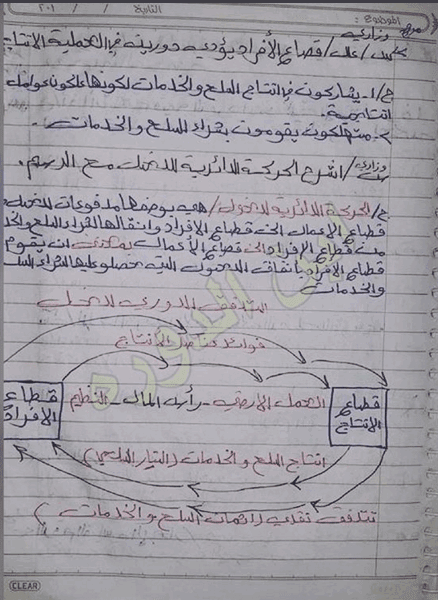 الموضوع: التاريخ / / ٢٠١
وزاري
س/ علل/ قطاع الأفراد يؤدي دورين في العملية الانتاجية
ج/ ١- يشاركون في انتاج السلع والخدمات لكونهم يملكون عوامل
انتاجية.
٢- مستهلكون يقومون بشراء السلع والخدمات.
وزاري
س/ اشرح الحركة الدائرية للدخل مع الرسم.
ج/ الحركة الدائرية للدخول/ هي بوصفها مدفوعات للدخل من
قطاع الاعمال الى قطاع الافراد وانتقالها لشراء السلع والخدمات
من قطاع الافراد الى قطاع الأعمال اي يقوم
قطاع الافراد بأنفاق الدخول التي حصلوا عليها لشراء السلع
والخدمات
التدفق الدوري للدخل
فوائد عناصر الانتاج
قطاع الافراد
العمل - الارض - رأس المال - التنظيم
قطاع الانتاج
انتاج السلع والخدمات (التيار السلعي)
تتدفق نقدي (اثمان السلع والخدمات)
CLEAR